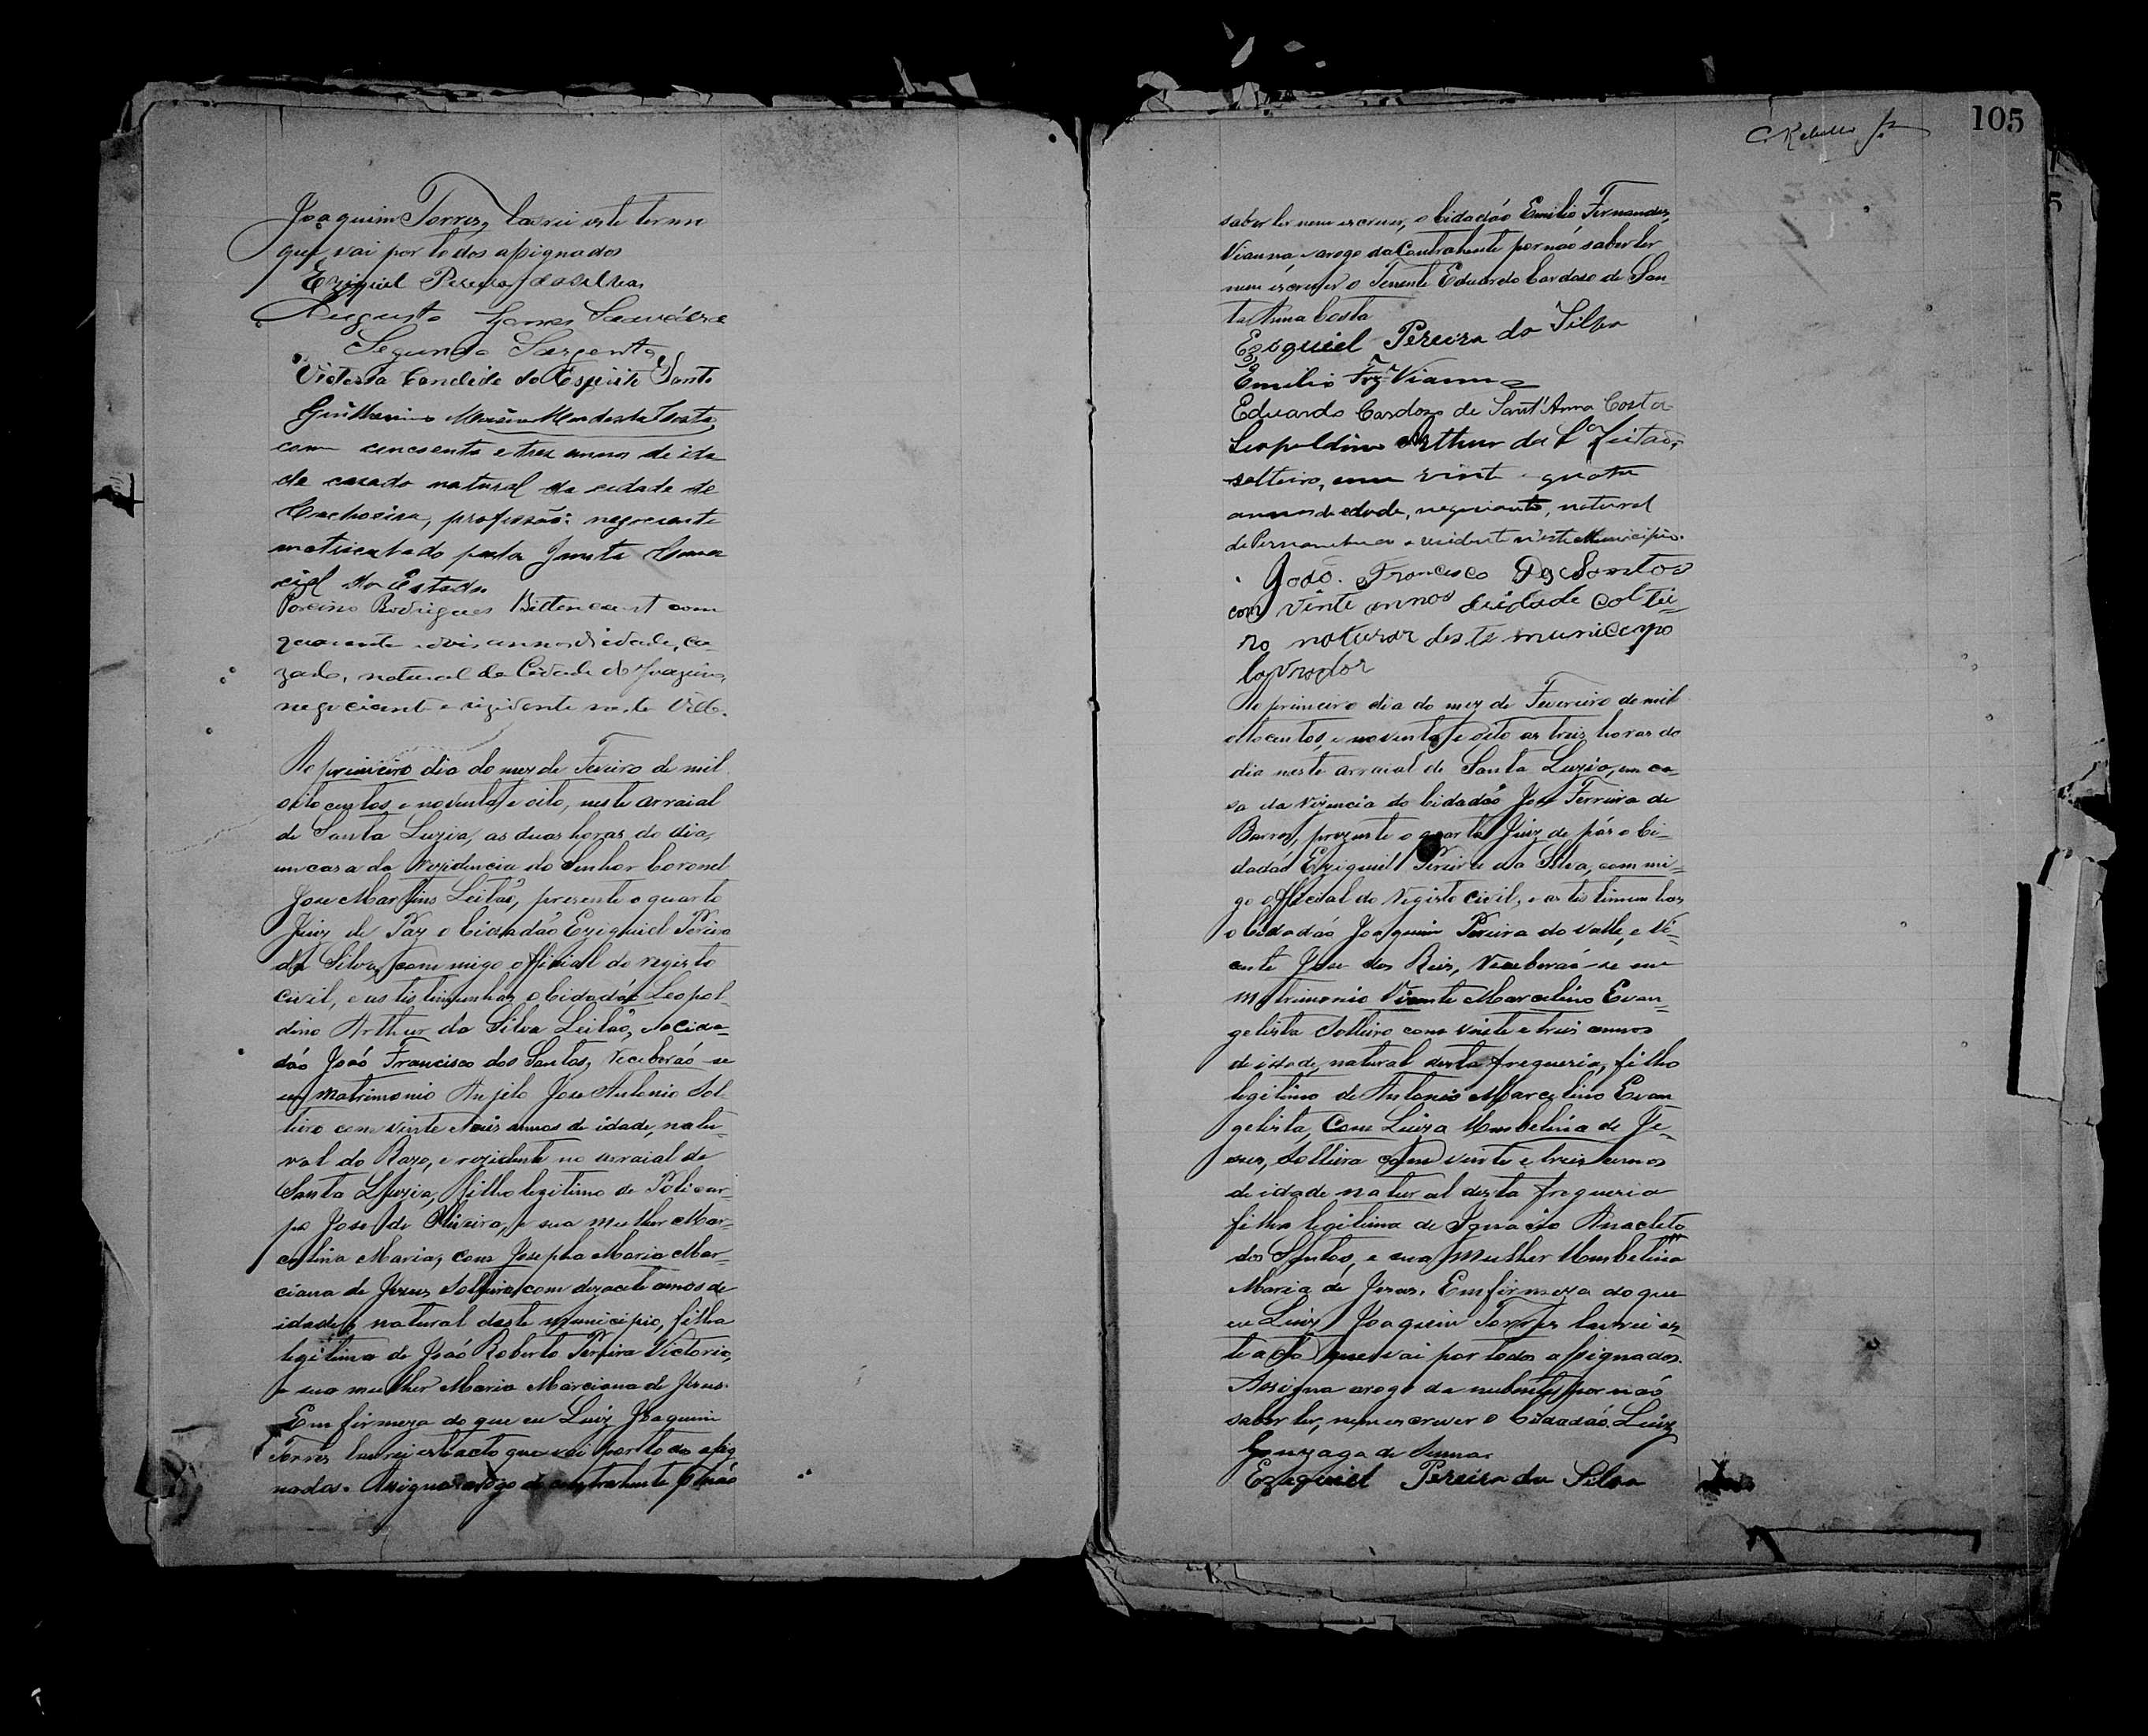 Joaquim Torres, lavrei este termo
que vai por todos assignados
Eziquiel Pereira da Silva
Augusto Gomes
Segundo Sargento
Victoria Candida do Espirito Santo
Guilhermino
com cincoenta e trez annos de ida
de casado natural da cidade de
Cachoeira, profissão: negociante
matriculado pela Junta Comer
cial do Estado
Porcino Rodrigues Bittencourt com
quarenta e dois annos de idade, ca-
zado, natural da Cidade do
negociante e rizidente nesta Villa.
Ao primeiro dia do mez de Feveiro de mil
oito centos e noventa e oito, neste arraial
de Santa Luzia, as duas horas do dia,
em casa da Rezidencia do Senhor Coronel
Jose Martins Leitaõ, presente o quarto
Juiz de Paz o Cidadão Eziquiel Pereira
da Silva, com migo official do registo
civil, e as testimunhas o Cidadão Leopol-
dino Arthur da Silva Leitaõ, o Cida-
dáo Joaõ Francisco dos Santos, Receberaõ-se
em matrimonio Anjelo Jose Antonio Sol-
teiro com vinte e annos de idade, natu-
ral do Razo, e rezidente no arraial de
Santa Luzia, filho legitimo de Policar-
po Jose de Oliveira, e sua mulher Mar-
celina Maria, com Josepha Maria Mar-
ciana de Jesus Solteira com dezacete annos de
idade, natural deste municipio, filha
legitima de Joaõ Roberto Pereira Victorio,
e sua mulher Maria Marciana de Jesus.
Em firmeza do que eu Luiz Joaquim
Torres lavrei este acto que vai por todos assig
nados. Assigna arogo da contrahente p naõ
105
saber ler nem escrever, o Cidadáo Emilio Fernandes
Vianna, e arogo da Contrahente por naõ saber ler
nem escrever o Tenente Eduardo Cardozo de San
ta Anna Costa
Ezequiel Pereira da Silva
Emilio Frz Vianna
Eduardo Cardozo de Sant'Anna Costa
Leopoldino Arthur da Sa Leitaõ,
solteiro, com vinte e quatro
annos de edade, negociante, natural
de Pernambuco e residente n'este Municipio.
Joaõ Francisco Dos Santos
com vinte annos deidade coltei-
ro naturar deste municipo
lavrador
Ao primeiro dia do mez de Fevereiro de mil
oitocentos, e noventa, e oito as treis horas do
dia neste arraial de Santa Luzia, em ca-
sa da rezencia do Cidadaõ Jose Ferreira de
Barros, prezente o quarto Juiz de pás o Ci-
dadaõ Eziquiel Pereira da Silva, com mi-
go official do registo civil, e as testimunhas
o Cidadaõ Joaquim Pereira do Valle, e Vi-
cente Jose dos Reis, Receberaõ-se em
matrimonio Vicente Marcelino Evan-
gelista Solteiro com vinte e treis annos
de idade, natural desta freguezia, filho
legitimo de Antonio Marcelino Evan
gelista, Com Luiza Umbelina de Je-
sus, Solteira com vinte e treis annos
de idade natural desta freguezia
filha legitima de Ignacio Anacleto
dos Santos, e sua mulher Umbelina
Maria de Jesus. Em firmeza do que
eu Luiz Joaquim Torres lavrei es-
te acto que vai por todos assignados.
Assigna arogo da nubentes por naõ
saber ler, nem escrever o Cidadaõ Luiz
Gonzaga de Senna.
Ezequiel Pereira da Silva